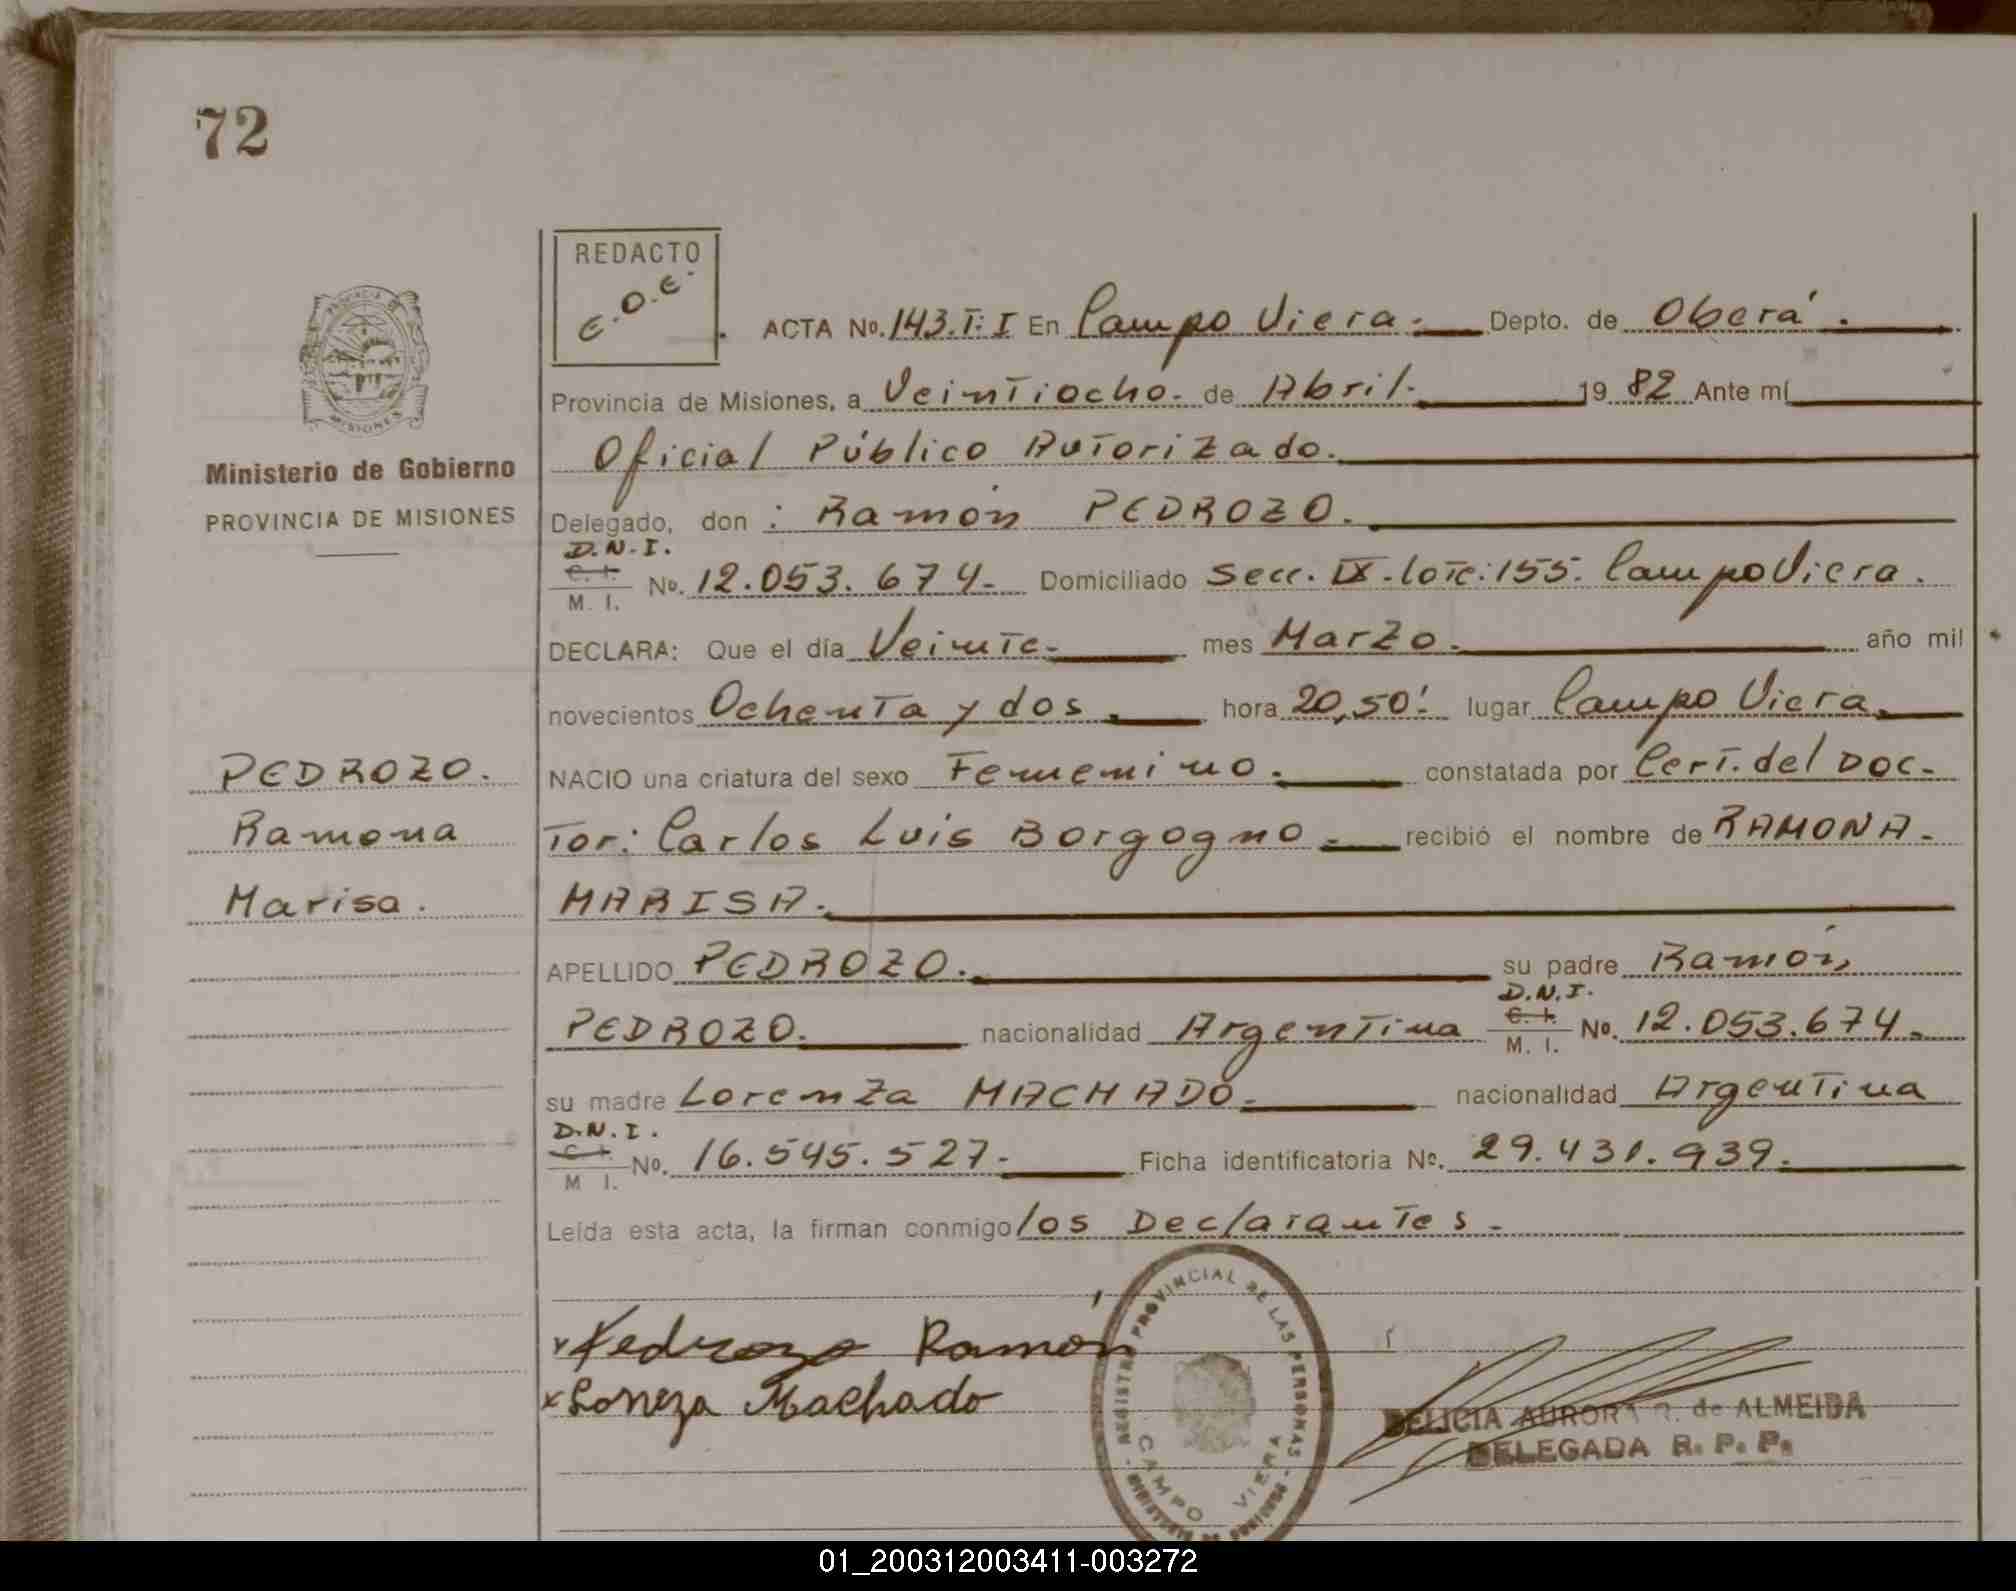 72
REDACTO
E.O.E.
ACTA No. 143.T:I En Campo Viera. Depto. de Oberá.
Provincia de Misiones, a Veintiocho. de Abril. 1982 Ante mí
Oficial Público Autorizado.
Delegado, don : Ramón PEDROZO.
D.N.I.
C. I.
M. I. No. 12.053.674. Domiciliado Secc. IX. lote: 155. Campo Viera.
DECLARA: Que el día Veinte. mes Marzo. año mil
novecientos Ochenta y dos. hora 20,50! lugar Campo Viera.
NACIO una criatura del sexo Femenino. constatada por Cert. del Doc-
tor: Carlos Luis Borgogno. recibió el nombre de RAMONA.
MARISA.
APELLIDO PEDROZO. su padre Ramón
PEDROZO. nacionalidad Argentina D.N.I. C. I. M. I. No. 12.053.674.
su madre Lorenza MACHADO. nacionalidad Argentina
D.N.I.
C. I.
M I. No. 16.545.527. Ficha identificatoria No. 29.431.939.
Leída esta acta, la firman conmigo los Declarantes.
PROVINCIA DE
MISIONES
Ministerio de Gobierno
PROVINCIA DE MISIONES
PEDROZO.
Ramona
Marisa.
x Pedrozo Ramón
x Loreza Machado
REGISTRO PROVINCIAL DE LAS PERSONAS
CAMPO VIERA
MINISTERIO DE GOBIERNO
DELICIA AURORA R. de ALMEIDA
DELEGADA R. P. P.
01_200312003411-003272